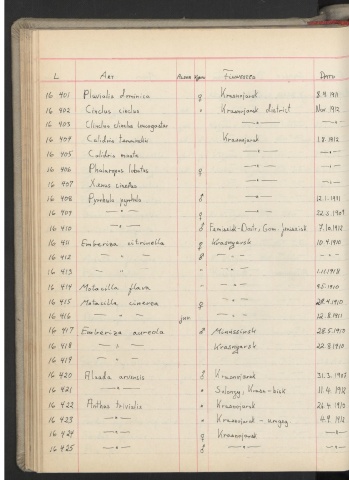 L Art Alder Kjønn Finnested Dato
16 401 Pluvialis dominica ♀ Krasnojarsk 8.9.1911
16 402 Cinclus cinclus " Krasnojarsk district Nov. 1912
16 403 Clinclus cinclus leucogaster — " — — " —
16 404 Calidris temminckii Krasnojarsk 1.8.1912
16 405 Calidris — " —
16 406 Phalaropus lobatus ♀ — " —
16 407 Xenus cinereus — " —
16 408 Pyrrhula pyrrhula ♂ — " — 12.1.1911
16 409 — " — ♀ — " — 22.3.1909
16 410 — " — ♂ Jenissisk 7.10.1912
16 411 Emberiza citrinella ♀ Krasnojarsk 10.4.1910
16 412 — " — ♂ — " — — " —
16 413 — " — " — " — 1.11.1918
16 414 Motacilla flava — " — 9.5.1910
16 415 Motacilla cinerea ♀ — " — 28.4.1910
16 416 — " — jun — " — 12.8.1911
16 417 Emberiza aureola ♂ Minussinsk 28.5.1910
16 418 — " — Krasnojarsk 22.8.1910
16 419 — " —
16 420 Alauda arvensis ♂ Krasnojarsk 31.3.1907
16 421 — " — " 11.4.1912
16 422 Anthus trivialis " Krasnojarsk 26.4.1910
16 423 — " — " Krasnojarsk - omgeg 4.9.1912
16 424 — " — ♀ Krasnojarsk — " —
16 425 — " — ♂ — " — — " —